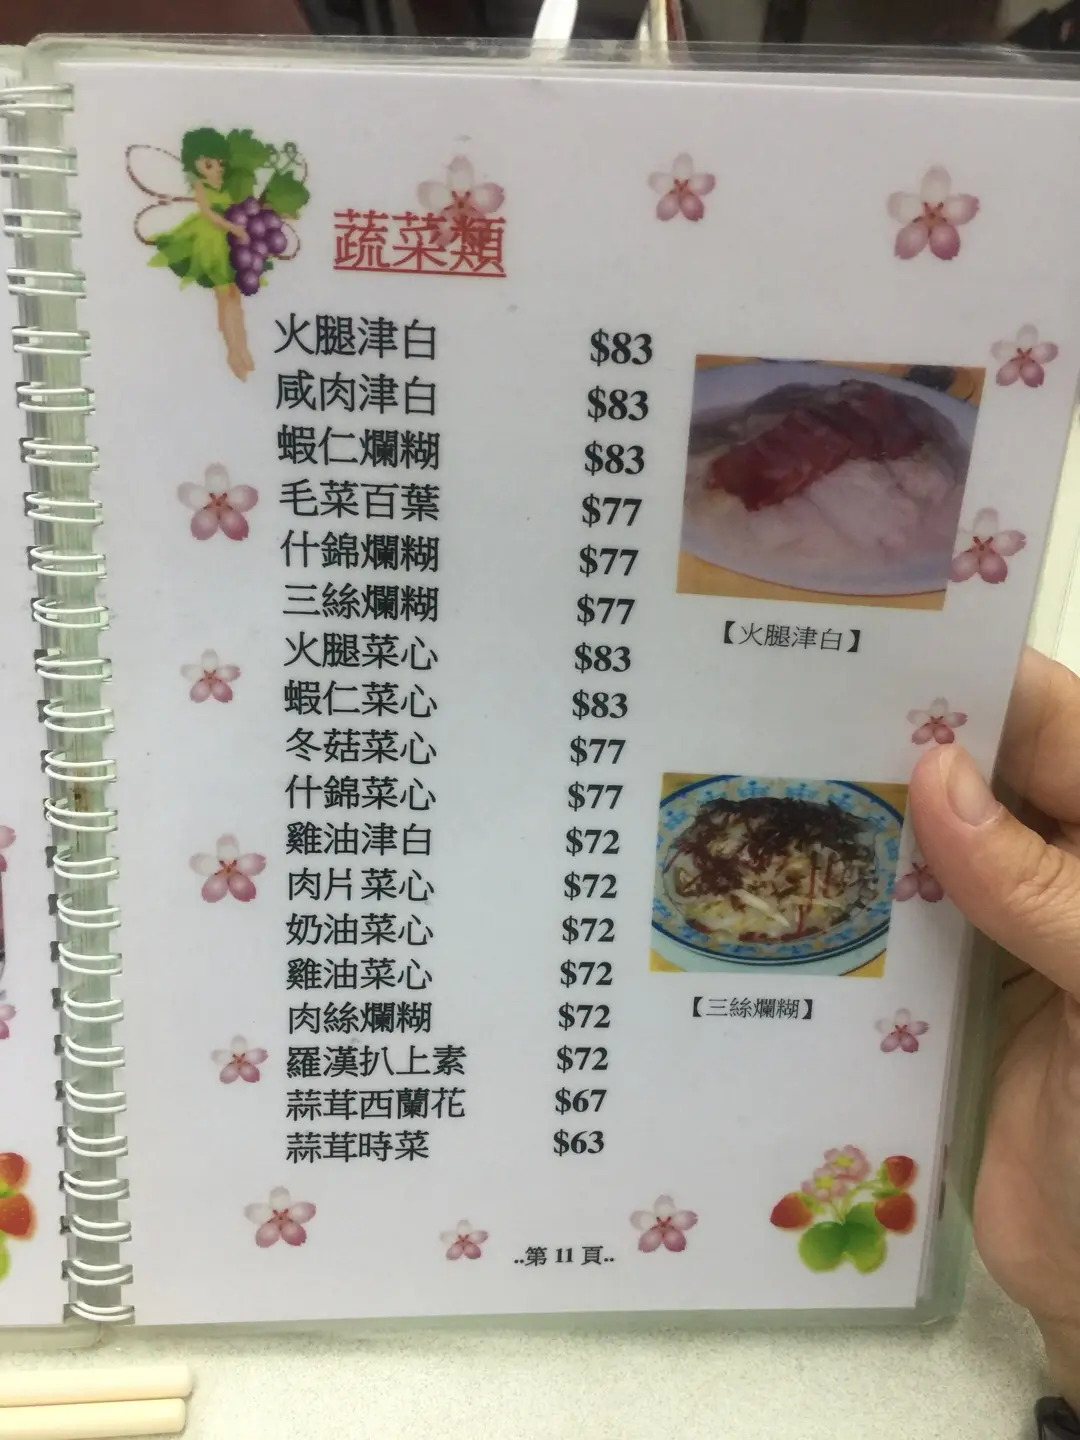 蔬菜類
火腿津白 $83
咸肉津白 $83
蝦仁爛糊 $83
毛菜百葉 $77
什錦爛糊 $77
三絲爛糊 $77
火腿菜心 $83
蝦仁菜心 $83
冬菇菜心 $77
什錦菜心 $77
雞油津白 $72
肉片菜心 $72
奶油菜心 $72
雞油菜心 $72
肉絲爛糊 $72
羅漢扒上素 $72
蒜茸西蘭花 $67
蒜茸時菜 $63
【火腿津白】
【三絲爛糊】
..第 11 頁..